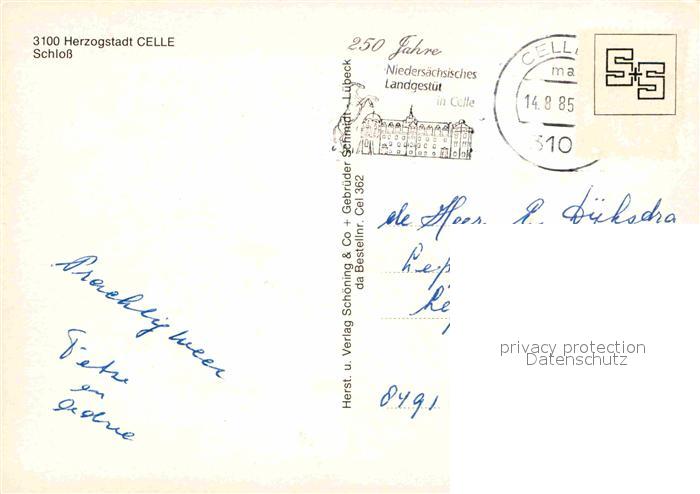 3100 Herzogstadt CELLE
Schloß
250 Jahre
Niedersächsisches
Landgestüt
in Celle
CELLE
ma
14.8.85
310
S+S
Herst. u. Verlag Schöning & Co + Gebrüder Schmidt - Lübeck
da Bestellnr. Cel 362
de Heer P. Dijksdra
8491
Prachtig weer
en
privacy protection
Datenschutz